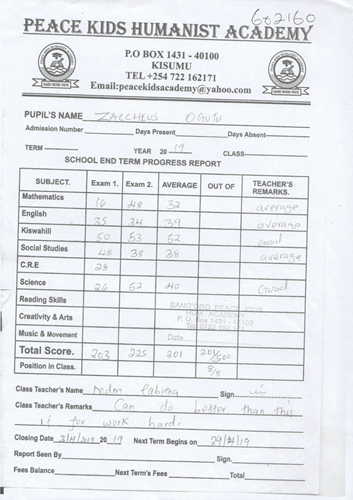 602160
PEACE KIDS HUMANIST ACADEMY
P.O BOX 1431 - 40100
KISUMU
TEL +254 722 162171
Email:peacekidsacademy@yahoo.com
PUPIL'S NAME ZACCHEUS OGUTU
Admission Number Days Present Days Absent
TERM YEAR 2019 CLASS
SCHOOL END TERM PROGRESS REPORT
SUBJECT. Exam 1. Exam 2. AVERAGE OUT OF TEACHER'S REMARKS.
Mathematics 16 48 32 average
English 35 34 39 average
Kiswahili 50 53 52 Good
Social Studies 48 38 38 average
C.R.E 28
Science 26 52 40 Good
Reading Skills
Creativity & Arts
Music & Movement
PEACE KIDS
HUM. ACADEMY
P.O. Box 1431 - 40100
Date
Total Score. 203 225 201 201/500
Position in Class. 8/8
Class Teacher's Name Mdm Sign.
Class Teacher's Remarks Can do better than this
if work hard.
Closing Date 3/4/2019 2019 Next Term Begins on 29/4/19
Report Seen By Sign.
Fees Balance Next Term's Fees Total